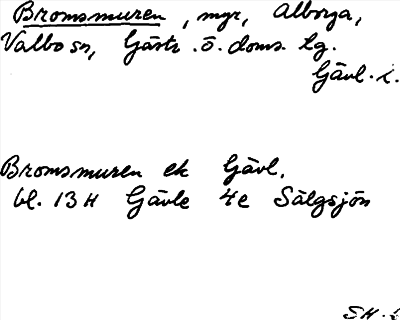 Bromsmuren, myr, Alborga,
Valbo sn, Gästr. ö. doms. tg.
Gävl. l.
Bromsmuren ek Gävl.
bl. 13 H Gävle 4e Sälgsjön